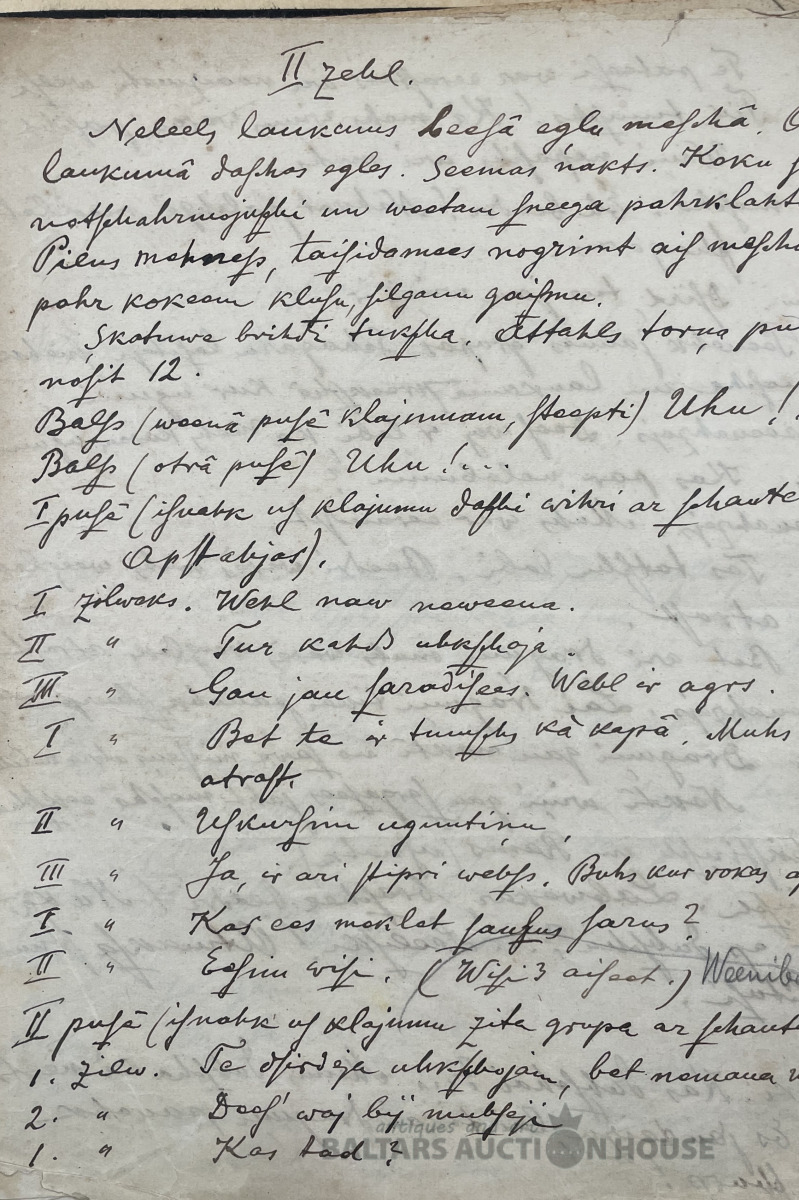 II zehl.
Neleels laukums beesâ eglu meſchâ.
laukumâ daſchas egles. Seemas nakts. Koku
noſpehrmojuſchi un weetam ſneega pahrklaht
Pilns mehneſs, taiſidamees nogrimt aiſ meſcha
pahr kokeem kluſu, ſilganu gaiſmu.
Skatuwe brihdi tukſcha. Attahls torņa pu
noſit 12.
Balſs (weenâ puſê klajumam, ſteepti) Uhu!..
Balſs (otrâ puſê) Uhu!...
I puſê (iſnahk uſ klajumu daſchi wihri ar ſchaute
Apſtahjas).
I zilweks. Wehl naw neweena.
II " . Tur kahds uhkſchoja.
III " Gan jau ſaradiſees. Wehl ir agrs.
I " Bet te ir tumſchs kâ kapâ. Muhs
atraſt.
II " . Uſkurſim uguntiņu,
III " Ja, ir ari ſtipri wehſs. Buhs kur rokas
I " Kas ees meklet ſauſus ſarus?
II " Eeſim wiſi. (Wiſi 3 aiſeet.)
II puſê (iſnahk uſ klajumu zita grupa ar ſchaute
1. zilw. Te dſirdeja uhkſchojam, bet nemana
2. " Deeſ' waj bij muhſeji
1. " Kas tad?
antiques
BALTARS AUCTION HOUSE